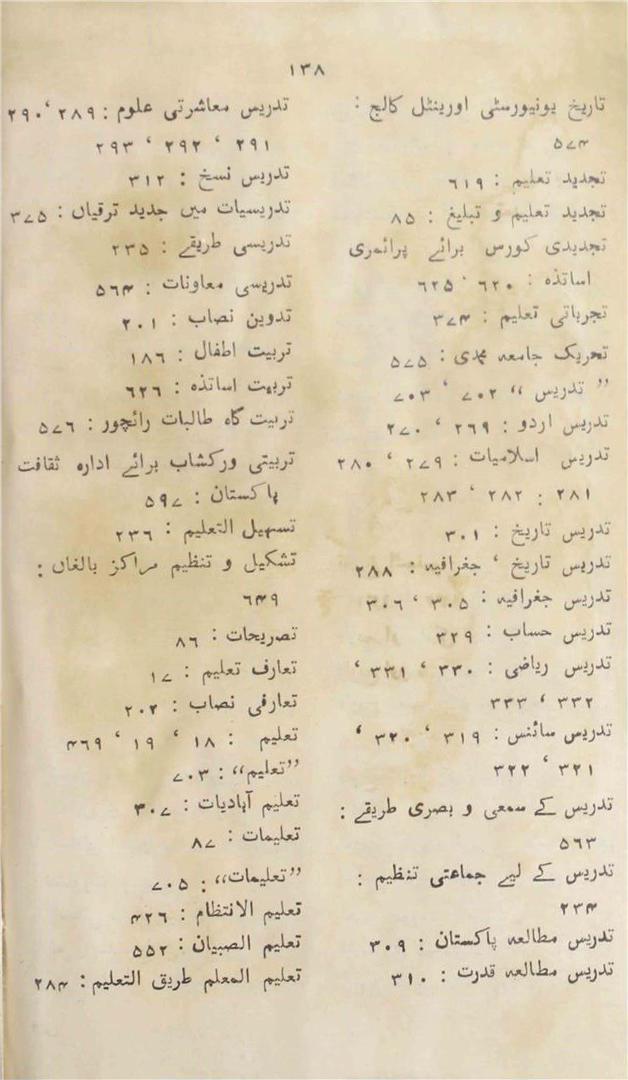 ۱۳۸
تاریخ یونیورسٹی اورینٹل کالج :
۵۷۴
تجدید تعلیم : ۶۱۹
تجدید تعلیم و تبلیغ : ۸۵
تجدیدی کورس برائے پرائمری
اساتذہ : ۶۲۰ ‘ ۶۲۵
تجرباتی تعلیم : ۳۷۴
تحریک جامعہ محمدی : ۵۷۵
”تدریس“ ۷۰۲ ‘ ۷۰۳
تدریس اردو : ۲۶۹ ‘ ۲۷۰
تدریس اسلامیات : ۲۷۹ ‘ ۲۸۰
۲۸۱ : ۲۸۲ ‘ ۲۸۳
تدریس تاریخ : ۳۰۱
تدریس تاریخ ‘ جغرافیہ : ۲۸۸
تدریس جغرافیہ : ۳۰۵ ‘ ۳۰۶
تدریس حساب : ۳۲۹
تدریس ریاضی : ۳۳۰ ‘ ۳۳۱ ‘
۳۳۲ ‘ ۳۳۳
تدریس سائنس : ۳۱۹ ‘ ۳۲۰ ‘
۳۲۱ ‘ ۳۲۲
تدریس کے سمعی و بصری طریقے :
۵۶۳
تدریس کے لیے جماعتی تنظیم :
۲۳۴
تدریس مطالعہ پاکستان : ۳۰۹
تدریس مطالعہ قدرت : ۳۱۰
تدریس معاشرتی علوم : ۲۸۹ ‘ ۲۹۰
۲۹۱ ‘ ۲۹۲ ‘ ۲۹۳
تدریس نسخ : ۳۱۲
تدریسیات میں جدید ترقیاں : ۳۷۵
تدریسی طریقے : ۲۳۵
تدریسی معاونات : ۵۶۴
تدوین نصاب : ۲۰۱
تربیت اطفال : ۱۸۶
تربیت اساتذہ : ۶۲۶
تربیت گاہ طالبات رائچور : ۵۷۶
تربیتی ورکشاپ برائے ادارہ ثقافت
پاکستان : ۵۹۷
تسہیل التعلیم : ۲۳۶
تشکیل و تنظیم مراکز بالغاں :
۶۴۹
تصریحات : ۸۶
تعارف تعلیم : ۱۷
تعارفی نصاب : ۲۰۲
تعلیم : ۱۸ ‘ ۱۹ ‘ ۴۶۹
”تعلیم“ : ۷۰۳
تعلیم آبادیات : ۳۰۷
تعلیمات : ۸۷
”تعلیمات“ : ۷۰۵
تعلیم الانتظام : ۴۲۶
تعلیم الصبیان : ۵۵۲
تعلیم المعلم طریق التعلیم : ۲۸۴